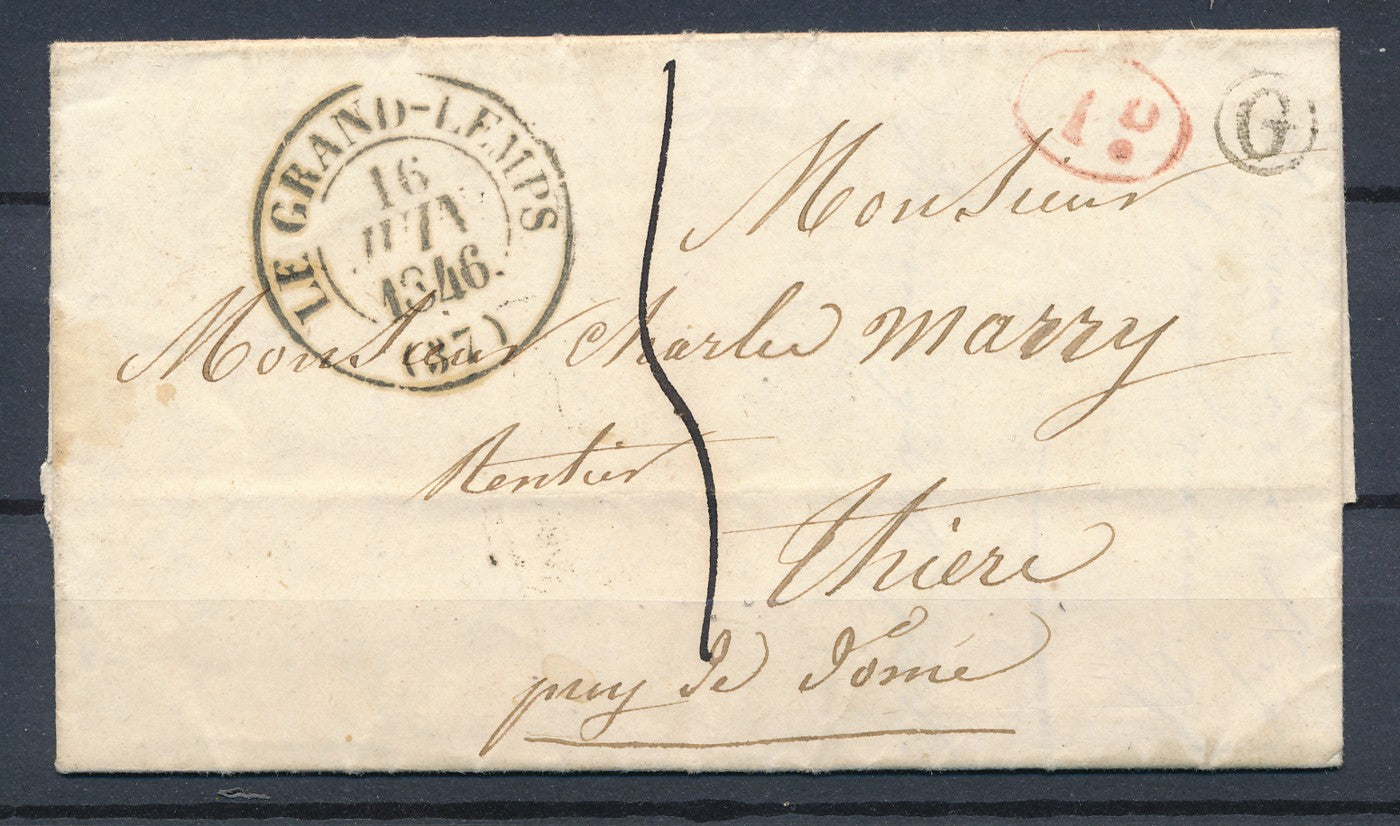 LE GRAND-LEMPS
16
JUIN
1846
(37)
1D
G
Monsieur
Monsieur Charles Marry
Rentier
Thiere
puy de Dome